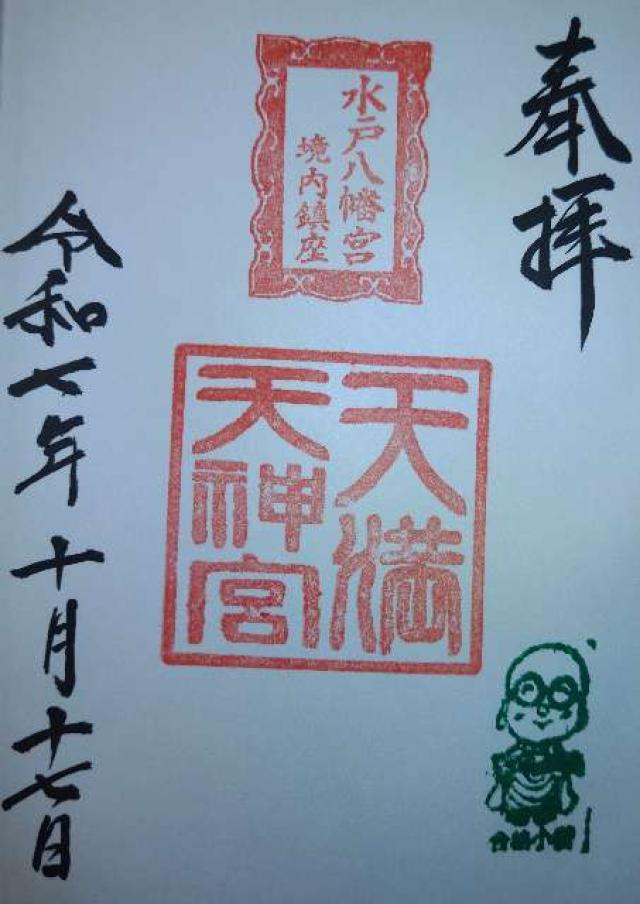 奉拝
水戸八幡宮
境内鎮座
天満
天神宮
令和七年十月十七日
合格小僧